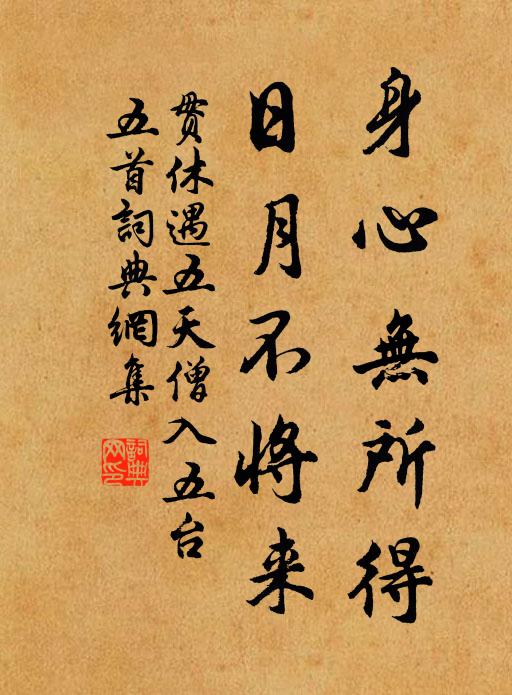 身心無所得
日月不将来
贯休遇五天僧入五台
五首詞典網集
詞典
网印